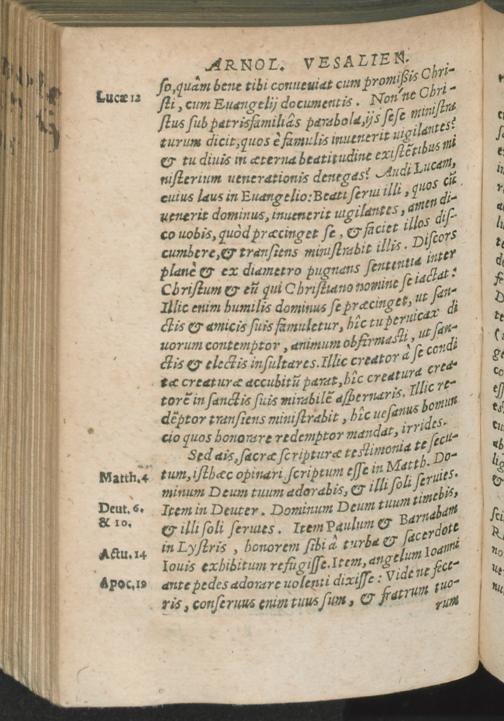 ARNOL. VESALIEN.
so, quàm bene tibi conueniat cum promißis Chri-
Lucæ 12
sti, cum Euangelij documentis. Nónne Chri-
stus sub patrisfamiliâs parabola, ijs sese ministra
turum dicit, quos è famulis inuenerit uigilantes?
& tu diuis in æterna beatitudine existẽtibus mi
nisterium uenerationis denegas? Audi Lucam,
cuius laus in Euangelio: Beati serui illi, quos cũ
uenerit dominus, inuenerit uigilantes, amen di-
co uobis, quòd præcinget se, & faciet illos dis-
cumbere, & transiens ministrabit illis. Discors
planè & ex diametro pugnans sententia inter
Christum & eũ qui Christiano nomine se iactat:
Illic enim humilis dominus se præcinget, ut san-
ctis & amicis suis famuletur, hîc tu peruicax di
uorum contemptor, animum obfirmasti, ut san-
ctis & electis insultares. Illic creator à se condi
tæ creaturæ accubitũ parat, hîc creatura crea-
torẽ in sanctis suis mirabilẽ aspernaris. Illic re-
dẽptor transiens ministrabit, hîc uesanus homun
cio quos honorare redemptor mandat, irrides.
Sed ais, sacræ scripturæ testimonia te secu-
Matth. 4
tum, isthæc opinari. scriptum esse in Matth. Do-
minum Deum tuum adorabis, & illi soli seruies.
Deut. 6.
Item in Deuter. Dominum Deum tuum timebis,
& 10.
& illi soli seruies. Item Paulum & Barnabam
Actu. 14
in Lystris, honorem sibi à turba & sacerdote
Iouis exhibitum refugisse. Item, angelum Ioanni
Apoc. 19
ante pedes adorare uolenti dixisse: Vide ne fece-
ris, conseruus enim tuus sum, & fratrum tuo-
rum